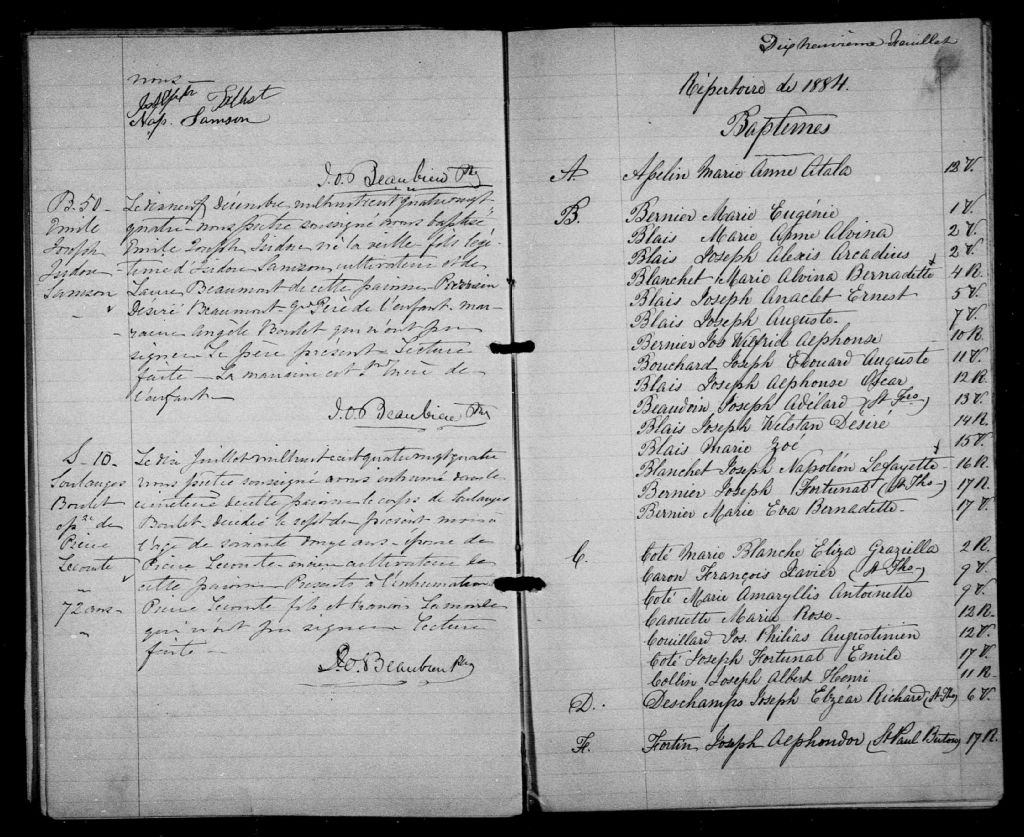 nous —
Nap. Samson
J. O. Beaubien Ptr
B. 50 —
Emile
Joseph
Isidore
Samson
Le dixneuf décembre mil huit cent quatre vingt
quatre nous prêtre soussigné avons baptisé
Emile Joseph Isidore né la veille fils légi-
time d'Isidore Samson cultivateur et de
Laure Beaumont de cette paroisse Parrain
Desiré Beaumont Gd Père de l'enfant — mar-
raine Angèle Boulet qui n'ont pu
signer — Le père présent — Lecture
faite — La marraine est Gd mère de
l'enfant —
J. O. Beaubien Ptr
S — 10 —
Soulanges
Boulet
épse de
Pierre
Lecomte
"
72 ans —
"
Le dix Juillet mil huit cent quatre vingt quatre
nous prêtre soussigné avons inhumé dans le
cimetière de cette paroisse le corps de Soulanges
Boulet décédée le sept du présent mois à
l'age de soixante douze ans — épouse de
Pierre Lecomte ancien cultivateur de
cette paroisse — Présents à l'inhumation
Pierre Lecomte fils et François
qui n'ont pu signer — Lecture
faite —
J. O. Beaubien Ptr
Dix neuvième Feuillet
Répertoire de 1884.
Baptêmes
A. Asselin Marie Anne Atala 13 V.
B. Bernier Marie Eugénie 1 V.
Blais Marie Anne Alvina 2 V.
Blais Joseph Alexis Arcadius 2 V.
Blanchet Marie Alvina Bernadette 4 R.
Blais Joseph Anaclet Ernest 5 V.
Blais Joseph Auguste 7 V.
Bernier Jos Wilfrid Alphonse 10 R.
Bouchard Joseph Edouard Auguste 11 V.
Blais Joseph Alphonse Oscar 12 R.
Beaudoin Joseph Adélard (St Frs) 13 V.
Blais Joseph Welstan Desiré 14 R.
Blais Marie Zoé 15 V.
Blanchet Joseph Napoléon Lafayette 16 R.
Bernier Joseph Fortunat (St Ths) 17 R.
Bernier Marie Eva Bernadette 17 V.
C. Coté Marie Blanche Eliza Graziella 2 R.
Caron François Xavier (St Ths) 9 V.
Coté Marie Amaryllis Antoinette 9 V.
Caouette Marie Rose 12 R.
Couillard Jos. Philias Augustinien 12 V.
Coté Joseph Fortunat Emile 17 V.
Collin Joseph Albert Henri 11 R.
D. Deschamps Joseph Elzéar Richard (St Ths) 6 V.
F. Fortin Joseph Alphondor (St Paul Buton) 17 R.